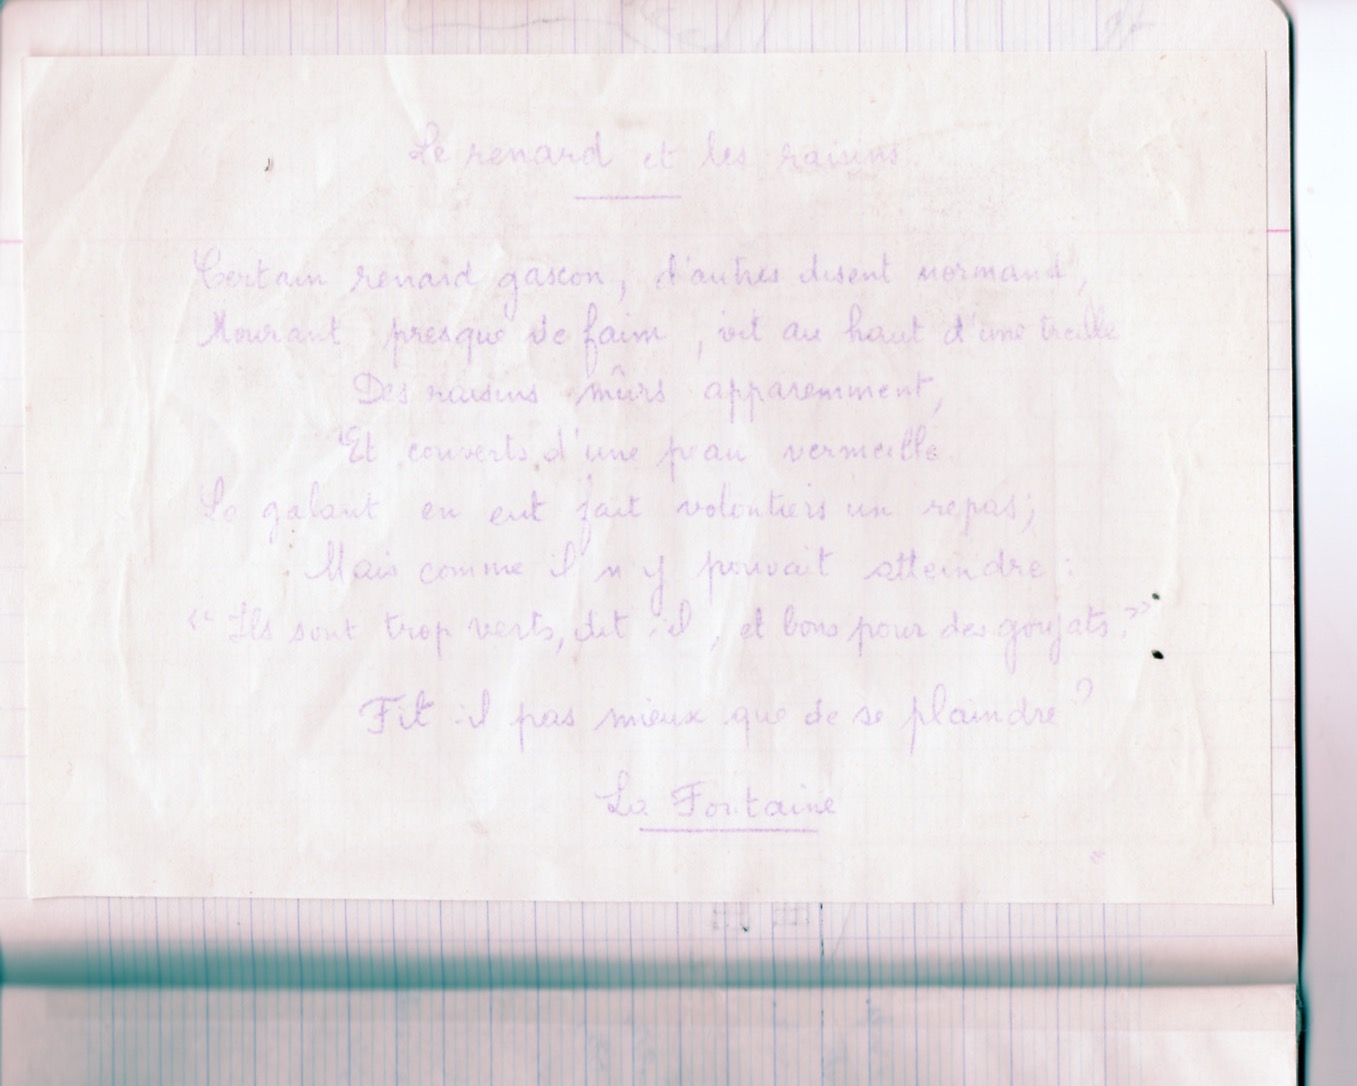 Le renard et les raisins
Certain renard gascon, d'autres disent normand,
Mourant presque de faim, vit au haut d'une treille
Des raisins mûrs apparemment,
Et couverts d'une peau vermeille
Le galant en eut fait volontiers un repas;
Mais comme il n'y pouvait atteindre :
"Ils sont trop verts, dit-il, et bons pour des goujats."
Fit-il pas mieux que de se plaindre ?
La Fontaine